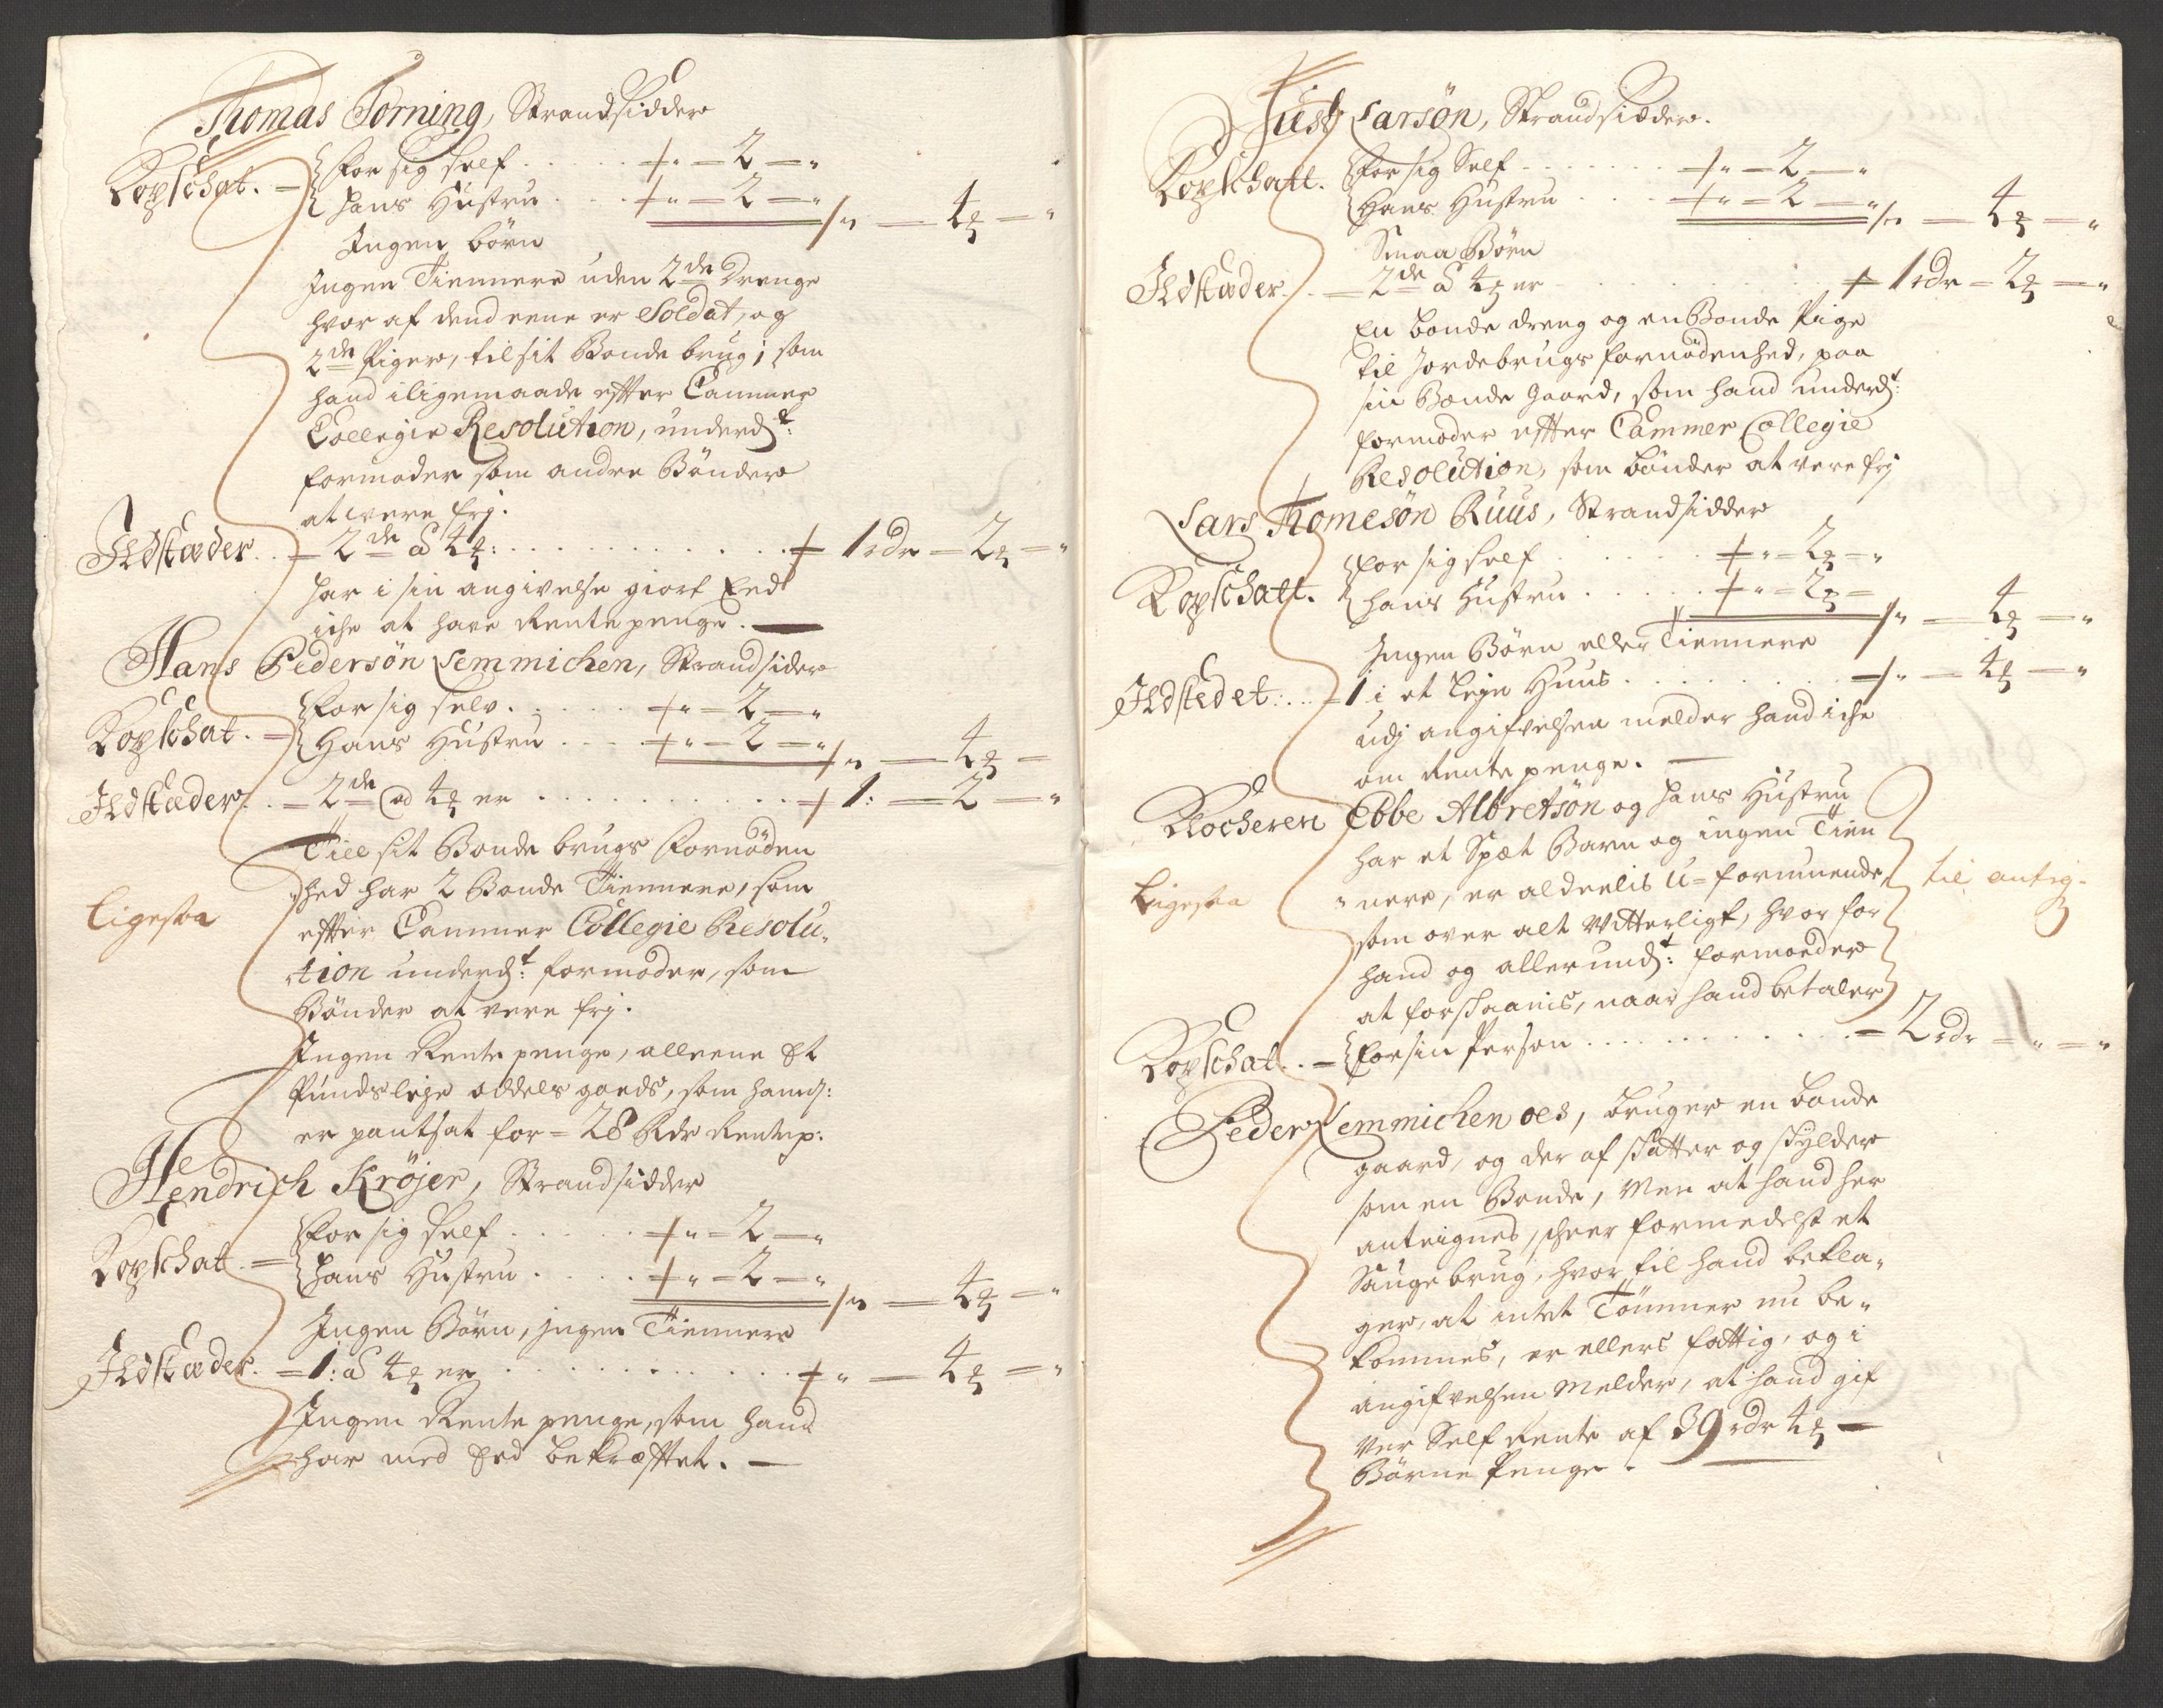 Thomas Torning, Strandsidder
Kopschat. = for sig self . . . . . + " = 2 = "
hans Hustru . . . + " = 2 = " /" = 4 ƺ = "
Ingen børn
Ingen Tiennere uden 2de Drenge
hvor af dend eene er Soldat, og
2de Piger, til sit Bonde brug; som
hand iligemaade effter Cammer
Collegie Resolution, underd.t:
formoder som andre Bönder
at were frj.
Ildstæder . . = 2de â 4 ƺ: . . . . . . . + 1 rdr = 2 ƺ = "
har i sin angivelse giort Eed
iche at have Rente penge. —
Hans Pedersön Lemmichen, Strandsider
Kopschat. = for sig selv . . . . . + " = 2 = "
Hans Hustru . . . + " = 2 = " /" = 4 ƺ =
Ildstæder . . = 2de â 4 ƺ er . . . . . . . + 1: = 2 = "
Till sit Bonde brugs fornöden
Ligesaa
hed har 2 Bonde Tiennere, som
effter Cammer Collegie Resolu,
tion underd.t: formoder, som
Bönder at vere frj.
Ingen Rente penge, alleene Et
Punds leje oddels goeds, som hans:
er pantsat for = 28 Rdr Rentep:
Hendrich Kröjer, Strandsidder
Kopschat . = for sig self . . . . . + " = 2 = "
hans Hustru . . . . + " = 2 = " /" = 4 ƺ = "
Ingen Börn, jngen Tiennere
Ildstæder. = 1: â 4 ƺ er . . . . . . . + " = 4 ƺ = "
Ingen Rente penge, som hand
har med Eed bekræfftet. —
Just Larsön, Strandsidder.
Kopschatt. for sig Self . . . . . + " = 2 = "
Hans Hustru . . . + " = 2 = " /" = 4 ƺ = "
Smaa Börn
Ildstæder . . = 2de â 4 ƺ er . . . . . . + 1 rdr = 2 ƺ = "
En bonde dreng og en Bonde Pige
til Jordebrugs fornödenhed, paa
sin Bonde Gaard, som hand underd.t:
formoder effter Cammer Collegie
Resolution, som bönder at vere frj
Lars Thomesön Ruus, Strandsidder
Kopschatt. for sig self . . . . . + " = 2 ƺ = "
hans Hustru . . . . . + " = 2 ƺ = /" = 4 ƺ = "
Ingen Börn eller Tiennere
Ildstedet: . . = 1 i et leje Huus . . . . . + " = 4 ƺ = "
udj angifvelsen melder hand iche
om Rente penge. —
Klocheren Ebbe Albretsön og hans Hustru
har et Spæt Barn og ingen Tien
Ligesaa
nere, er aldeelis u=formuende, til anteg.
som over alt Witterligt, hvor for
hand og allerund.t: formoeder
at forskaanis, naar hand betaler
Kopschat. . = for sin Person . . . . . . = 2 rdr = " = "
Peder Lemmichen oes, bruger en bonde
gaard, og der af skatter og skylder
som en Bonde, Men at hand her
anteignes, scheer formedelst et
Sauge brug, hvor til hand bekla,
ger, at intet Tömmer nu be,
kommes, er ellers fattig, og i
angifvelsen Melder, at hand gif
ver Self Rente af 39 rdr 4 ƺ —
Börne Penge.